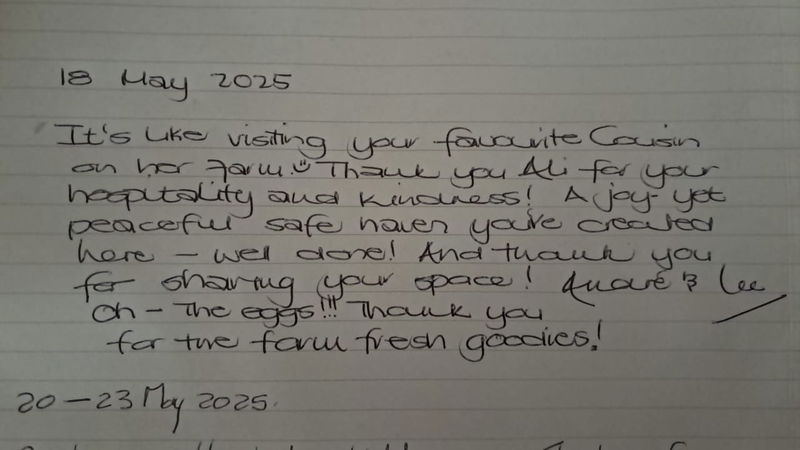 18 May 2025
It's like visiting your favourite Cousin
on her farm. Thank you Ali for your
hospitality and kindness! A joy-yet
peaceful safe haven you've created
here - well done! And thank you
for sharing your space! & Lee
Oh - The eggs!!! Thank you
for the farm fresh goodies!
20 - 23 May 2025.